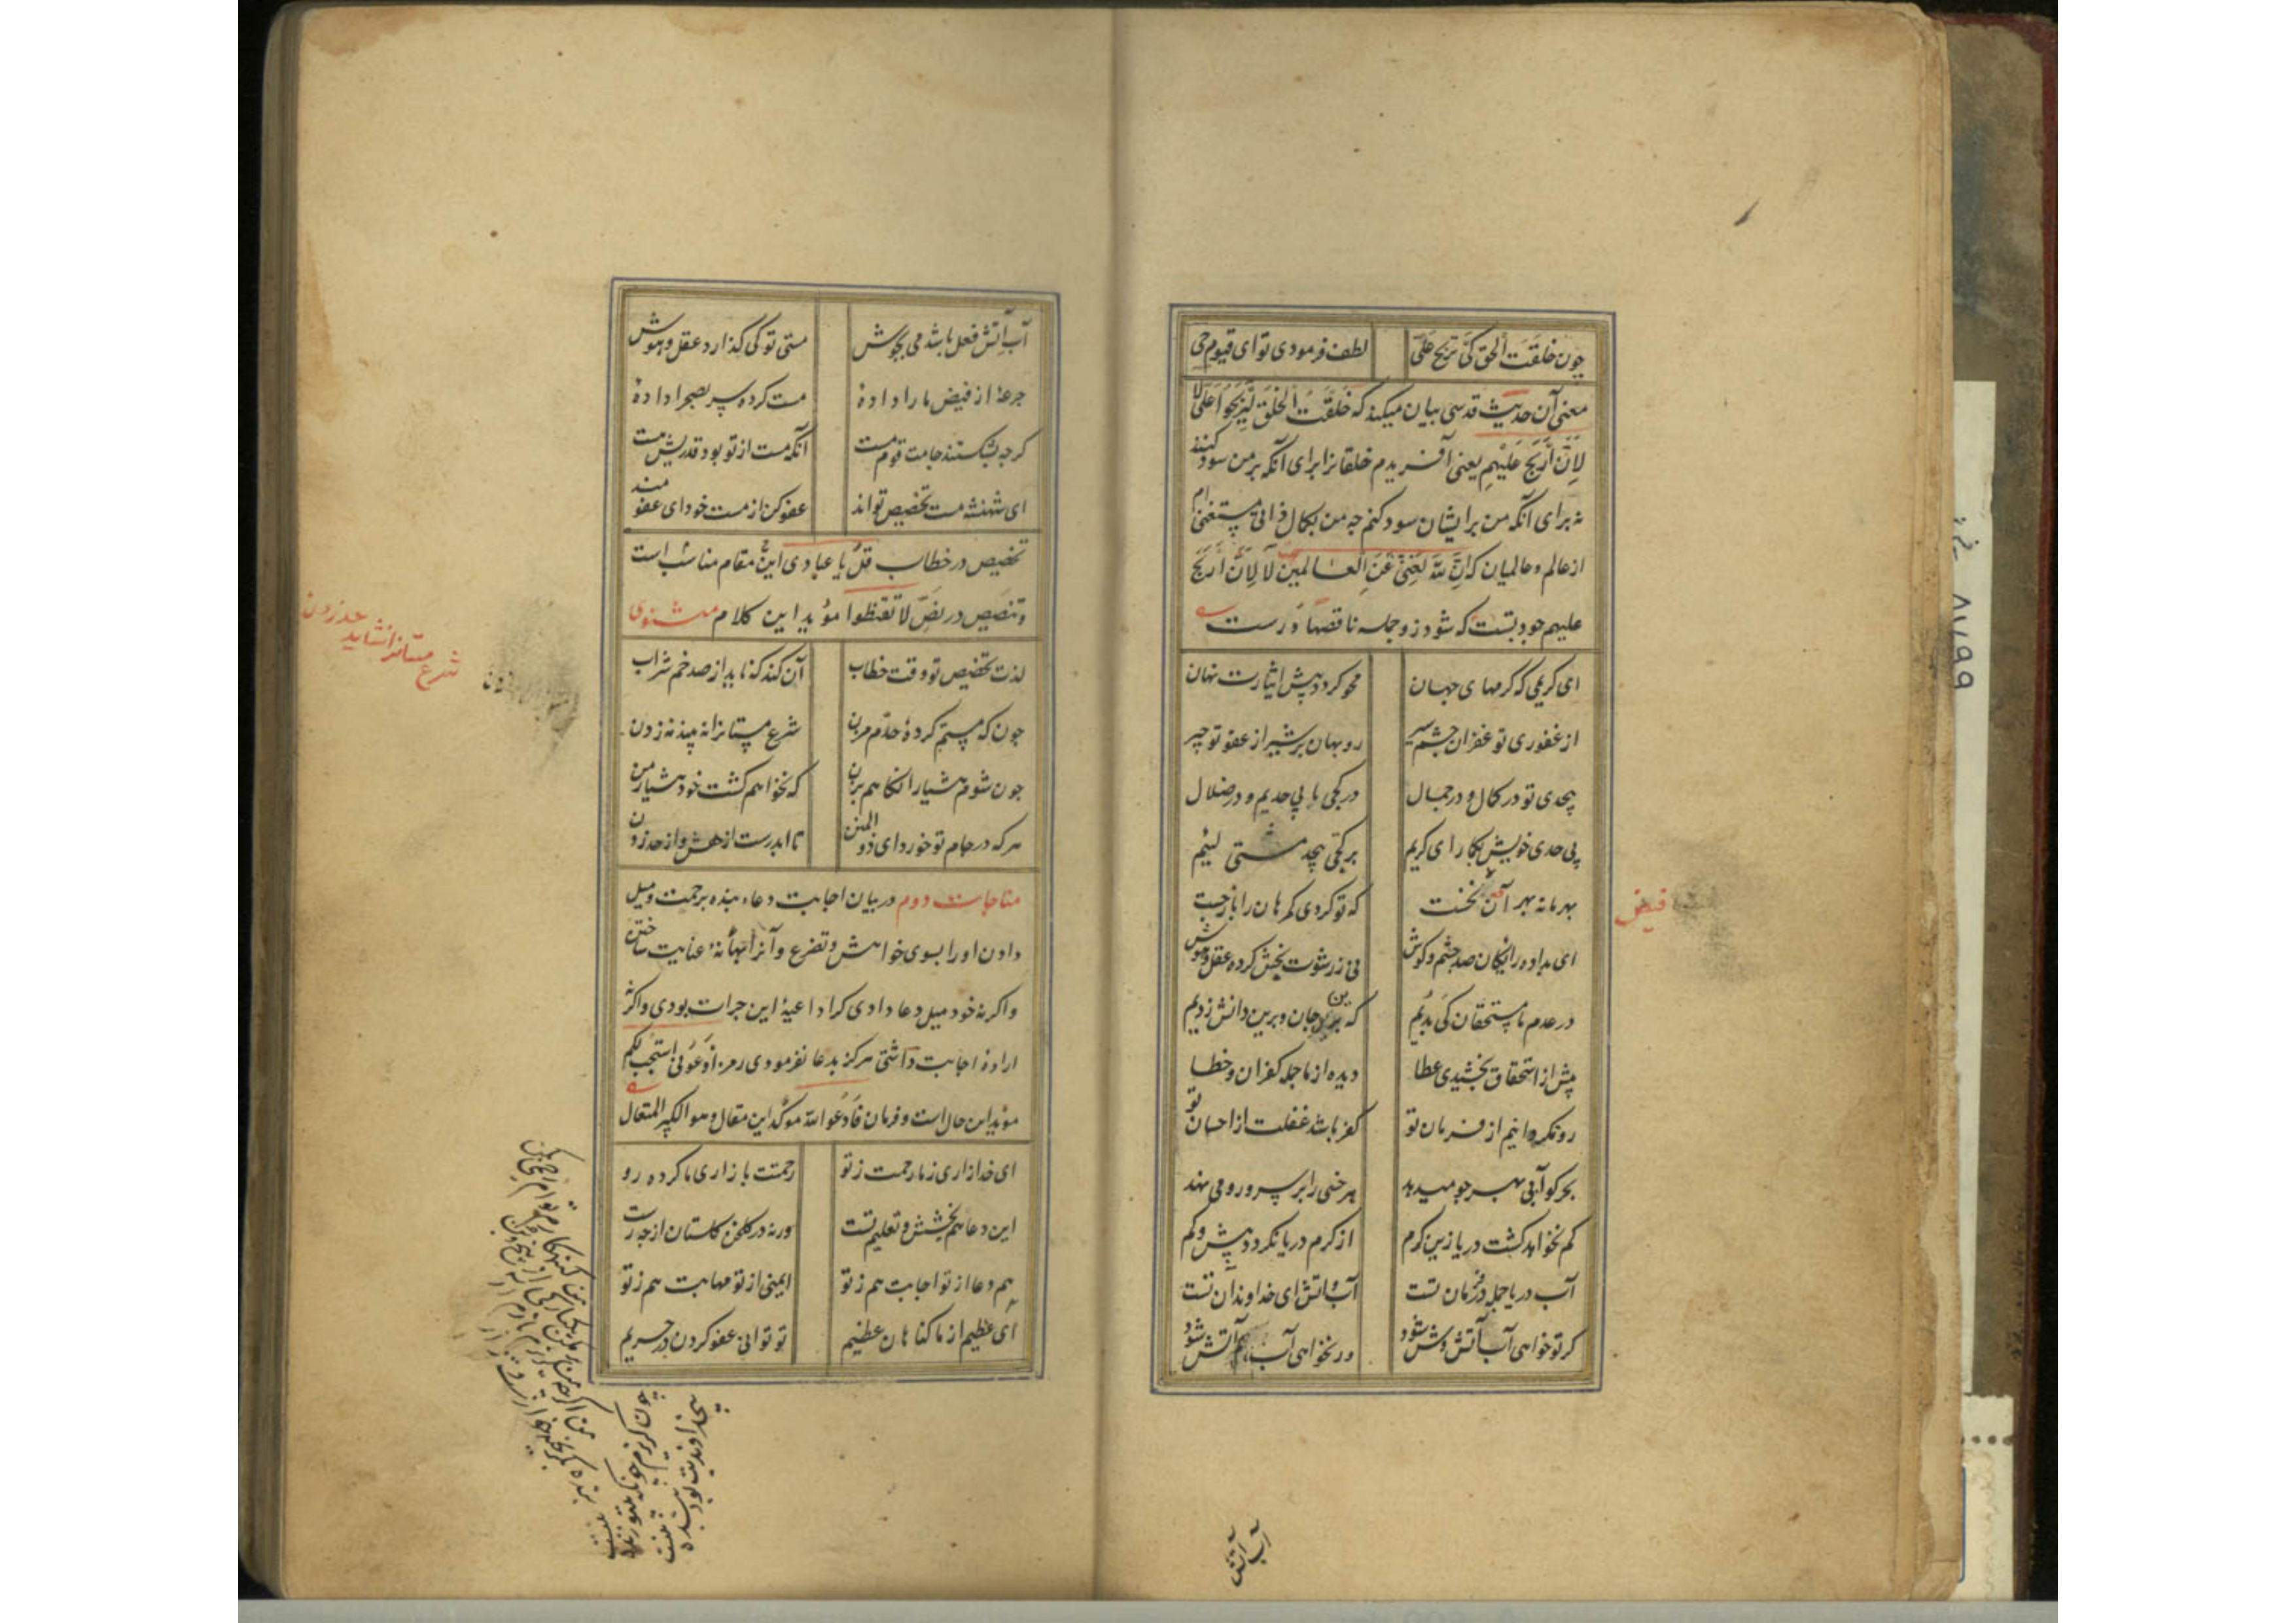 چون خلقت الخلق کی تربح علی لطف فرمودی تو ای قیوم حی
معنی آن حدیث قدسی بیان میکند که خلقت الخلق لیربحوا علی لا
لان اربح علیهم یعنی آفریدم خلقانرا برای آنکه بر من سود کنند
نه برای آنکه من برایشان سود کنم چه من بکمال ذاتی مستغنی ام
از عالم و عالمیان که ان الله لغنی عن العالمین لا لان اربح
علیهم جودتست که شود زو جمله ناقصها درست
ای کریمی که کرمهای جهان محو کردد پیش ایثارت نهان
از غفوری تو غفران چشم سیر روبهان بر شیر از عفو تو چیر
بیحدی تو در کمال و در جمال در کجی ما بی حدیم و در ضلال
بی حدی خویش بکمار ای کریم بر کجی بیحد مشتی لئیم
بهر ما نه بهر آن نخست که تو کردی کمرهان را باز جست
ای بداده رایکان صد چشم و کوش نی ز رشوت بخش کرده عقل و هوش
در عدم ما مستحقان کی بدیم که برین جان و برین دانش زدیم
پیش از استحقاق بخشیدی عطا دیده از ما جمله کفران و خطا
رو نکردانیم از فرمان تو کفر باشد غفلت از احسان تو
بحر کو آبی بهر جو میدهد هر خسی را بر سر و رو می نهد
کم نخواهد کشت دریا زین کرم از کرم دریا نکردد بیش و کم
آب دریا جمله در فرمان تست آب و آتش ای خداوند آن تست
کر تو خواهی آب آتش وش شود ور نخواهی آب هم آتش شود
فیض
آب آتش
آب آتش فعل باشد می بجوش مستی تو کی کذارد عقل و هوش
جرعهٔ از فیض ما را دادهٔ مست کرده سر بصحرا دادهٔ
کرچه بشکستند جامت قوم مست آنکه مست از تو بود قدریش هست
ای شهنشه مست تخصیص تواند عفو کن از مست خود ای عفو مند
تخصیص در خطاب قل یا عبادی این مقام مناسب است
و تنصیص در نص لا تقنطوا مؤید این کلام مثنوی
لذت تخصیص تو وقت خطاب آن کند که ناید از صد خم شراب
چون که مستم کردهٔ حدم مزن شرع مستانرا نه بیند نه زدن
چون شوم هشیار انکاهم بزن که نخواهم کشت خود هشیار من
هر که در جام تو خورد ای ذو المنن تا ابد رست از هش و از حد زدن
شرع مستانرا نشاید حد زدن
مناجات دوم در بیان اجابت دعاء بنده برحمت و میل
دادن او را بسوی خواهش و تضرع و آنرا بهانهٔ عنایت ساختن
و اکر نه خود میل دعا دادی کرا داعیهٔ این جرات بودی و اکر نه
ارادهٔ اجابت داشتی هرکز بدعا نفرمودی رمز ادعونی استجب لکم
مؤید این حال است و فرمان فادعوا الله موکد این مقال و هو الکبیر المتعال
ای خدا زاری ز ما رحمت ز تو رحمتت با زاری ما کرده رو
این دعا هم بخشش و تعلیم تست ورنه در کلخن کلستان از چه رست
هم دعا از تو اجابت هم ز تو ایمنی از تو مهابت هم ز تو
ای عظیم از ما کناهان عظیم تو توانی عفو کردن در حریم